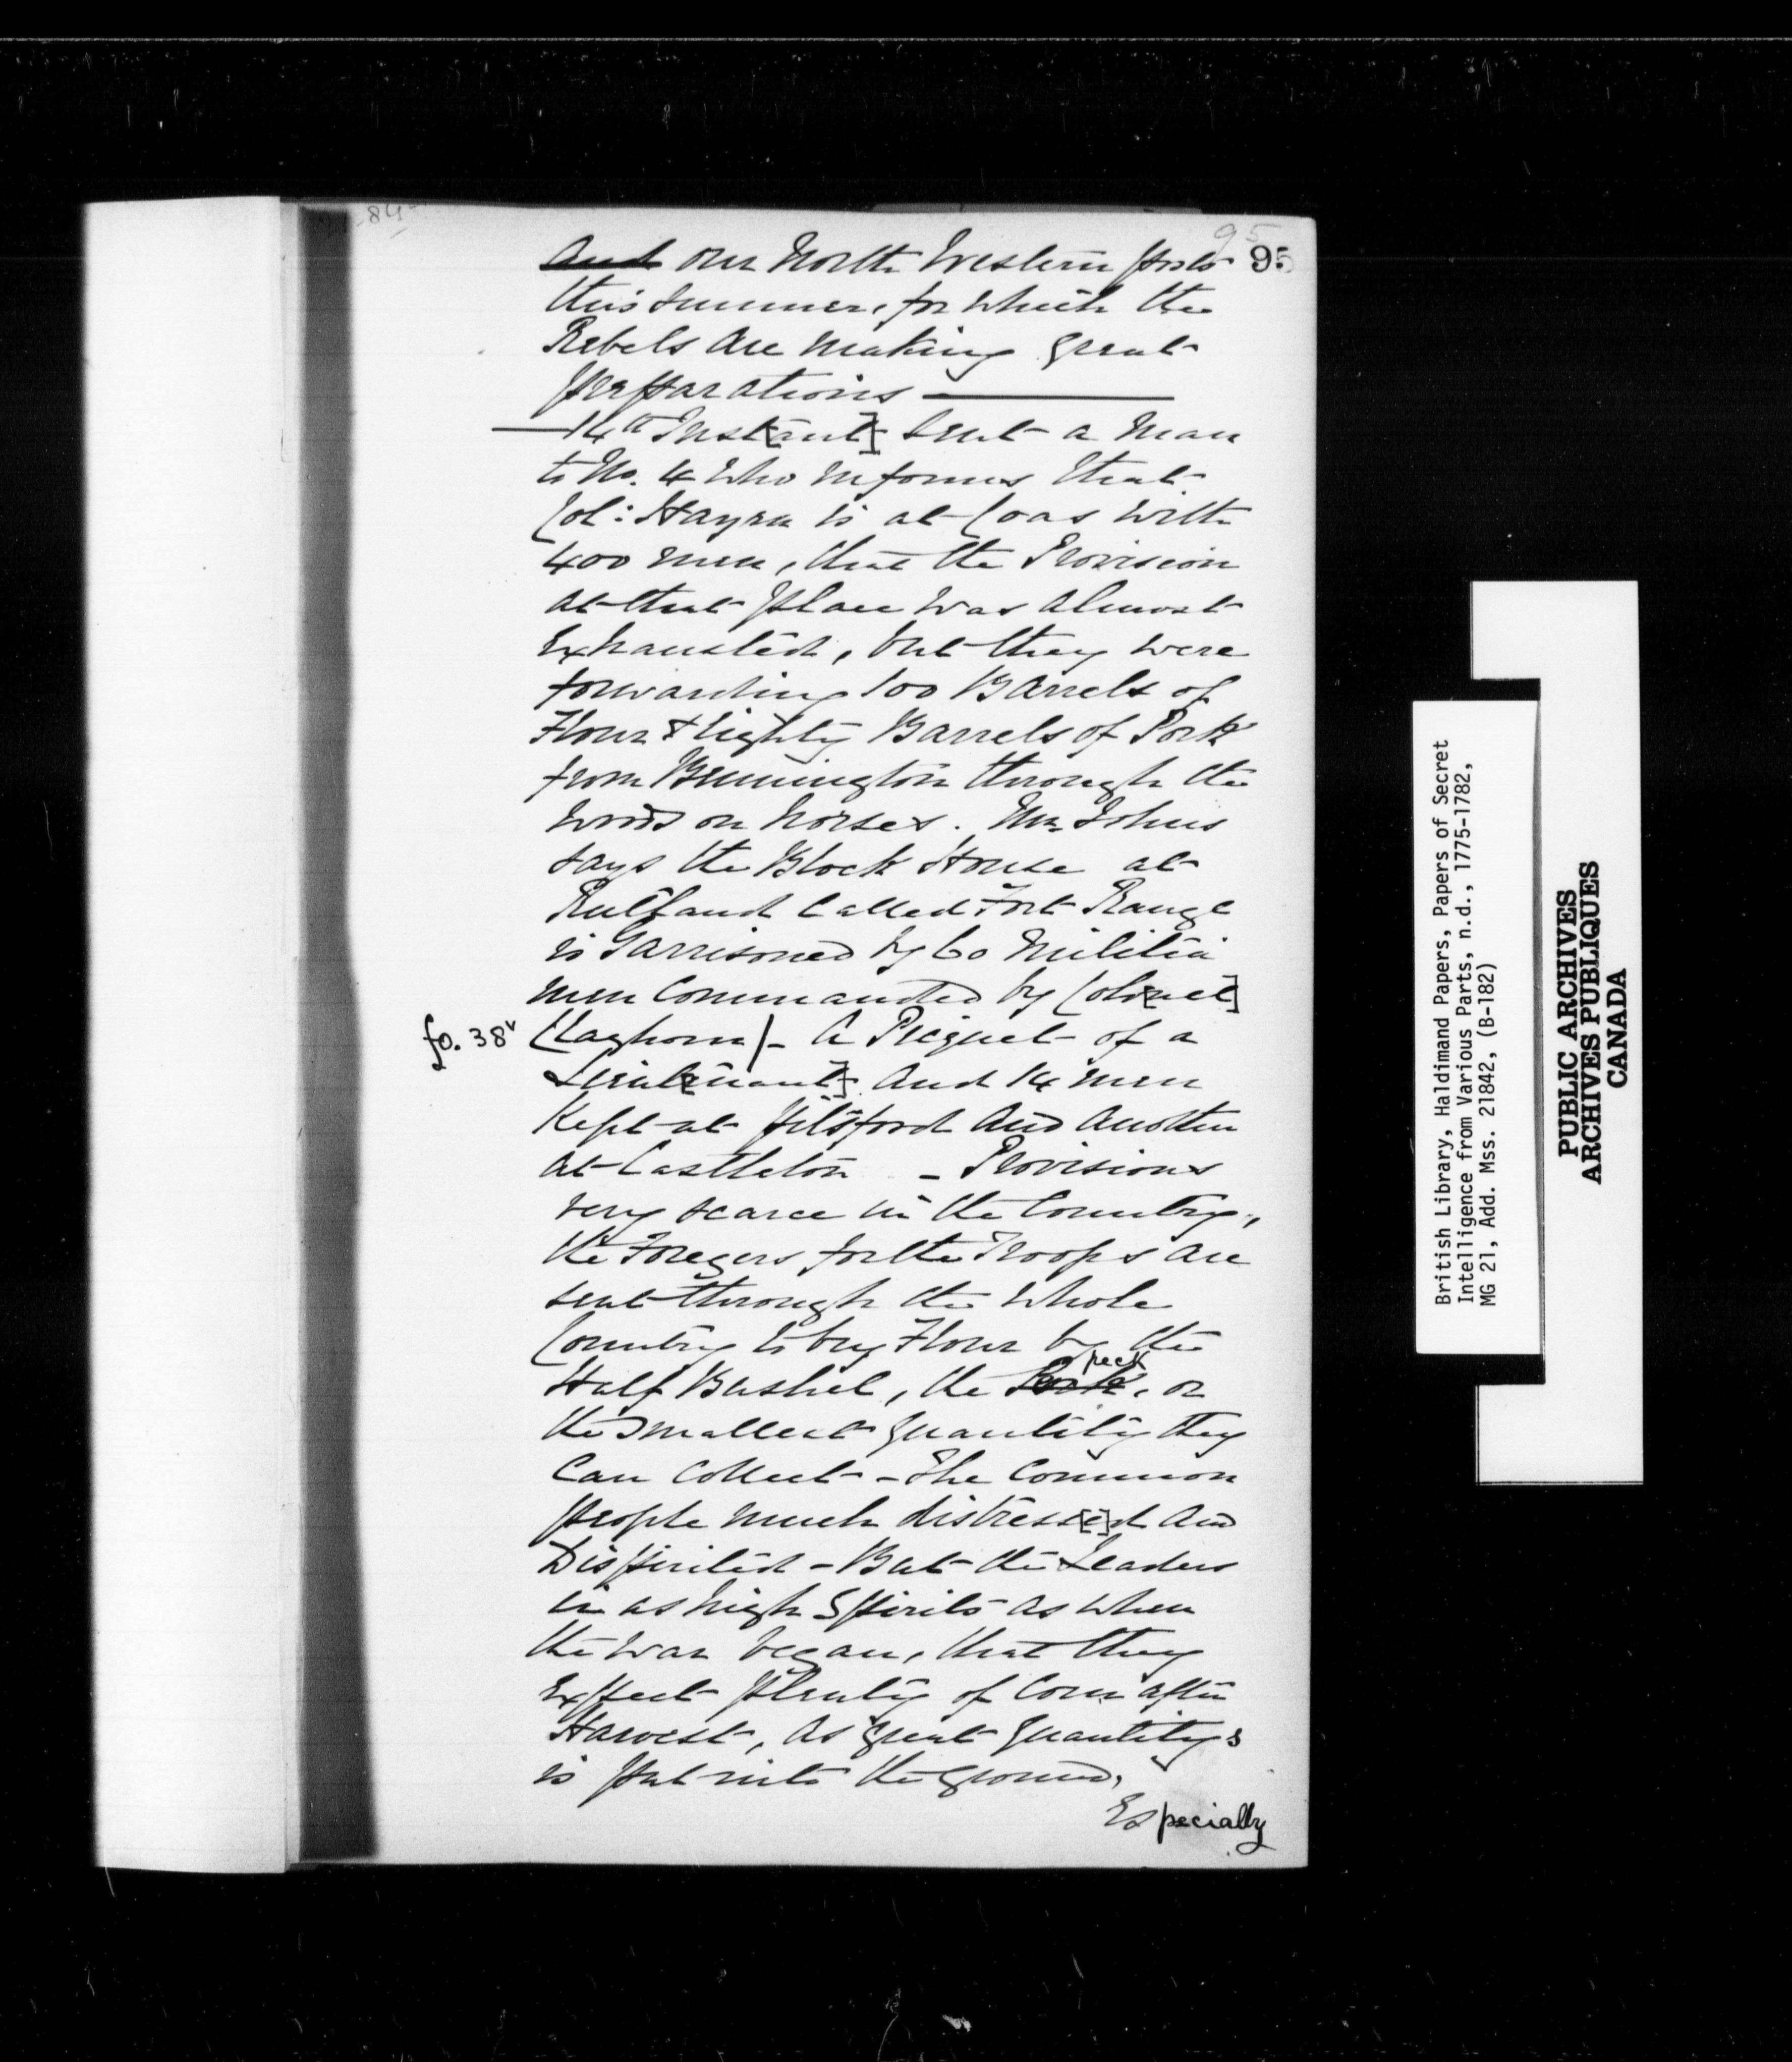 84
95
95
And our North Western posts
this summer, for which the
Rebels are making great
preparations —
— 14th Inst[ant] sent a man
to No. 4 who informs that
Col: Hayzen is at Coas with
400 men, that the Provision
at that place was almost
Exhausted, but they were
forwarding 100 Barrels of
Flour & Eighty Barrels of Pork
from Bennington through the
woods on horses. Mr Johns
says the Block House at
Rutland Called Fort Range
is Garrisoned by 60 Militia
men Commanded by Col[onel]
fo. 38v
Claghorn/- A Picquet of a
Lieut[enant] And 14 men
Kept at pitsford And another
at Castleton - Provisions
very scarce in the Country,
the Foregers for the Troops are
sent through the whole
Country to buy Flour by the
Half Bushel, the Pork peck, or
the smallest quantity they
Can Collect - The Common
people much distress[e]d and
Dispirited - But the Leaders
in as high Spirits as when
the war began, that they
Expect plenty of Corn after
Harvest, as great quantitys
is put into the ground,
Especially
British Library, Haldimand Papers, Papers of Secret
Intelligence from Various Parts, n.d., 1775-1782,
MG 21, Add. Mss. 21842, (B-182)
PUBLIC ARCHIVES
ARCHIVES PUBLIQUES
CANADA